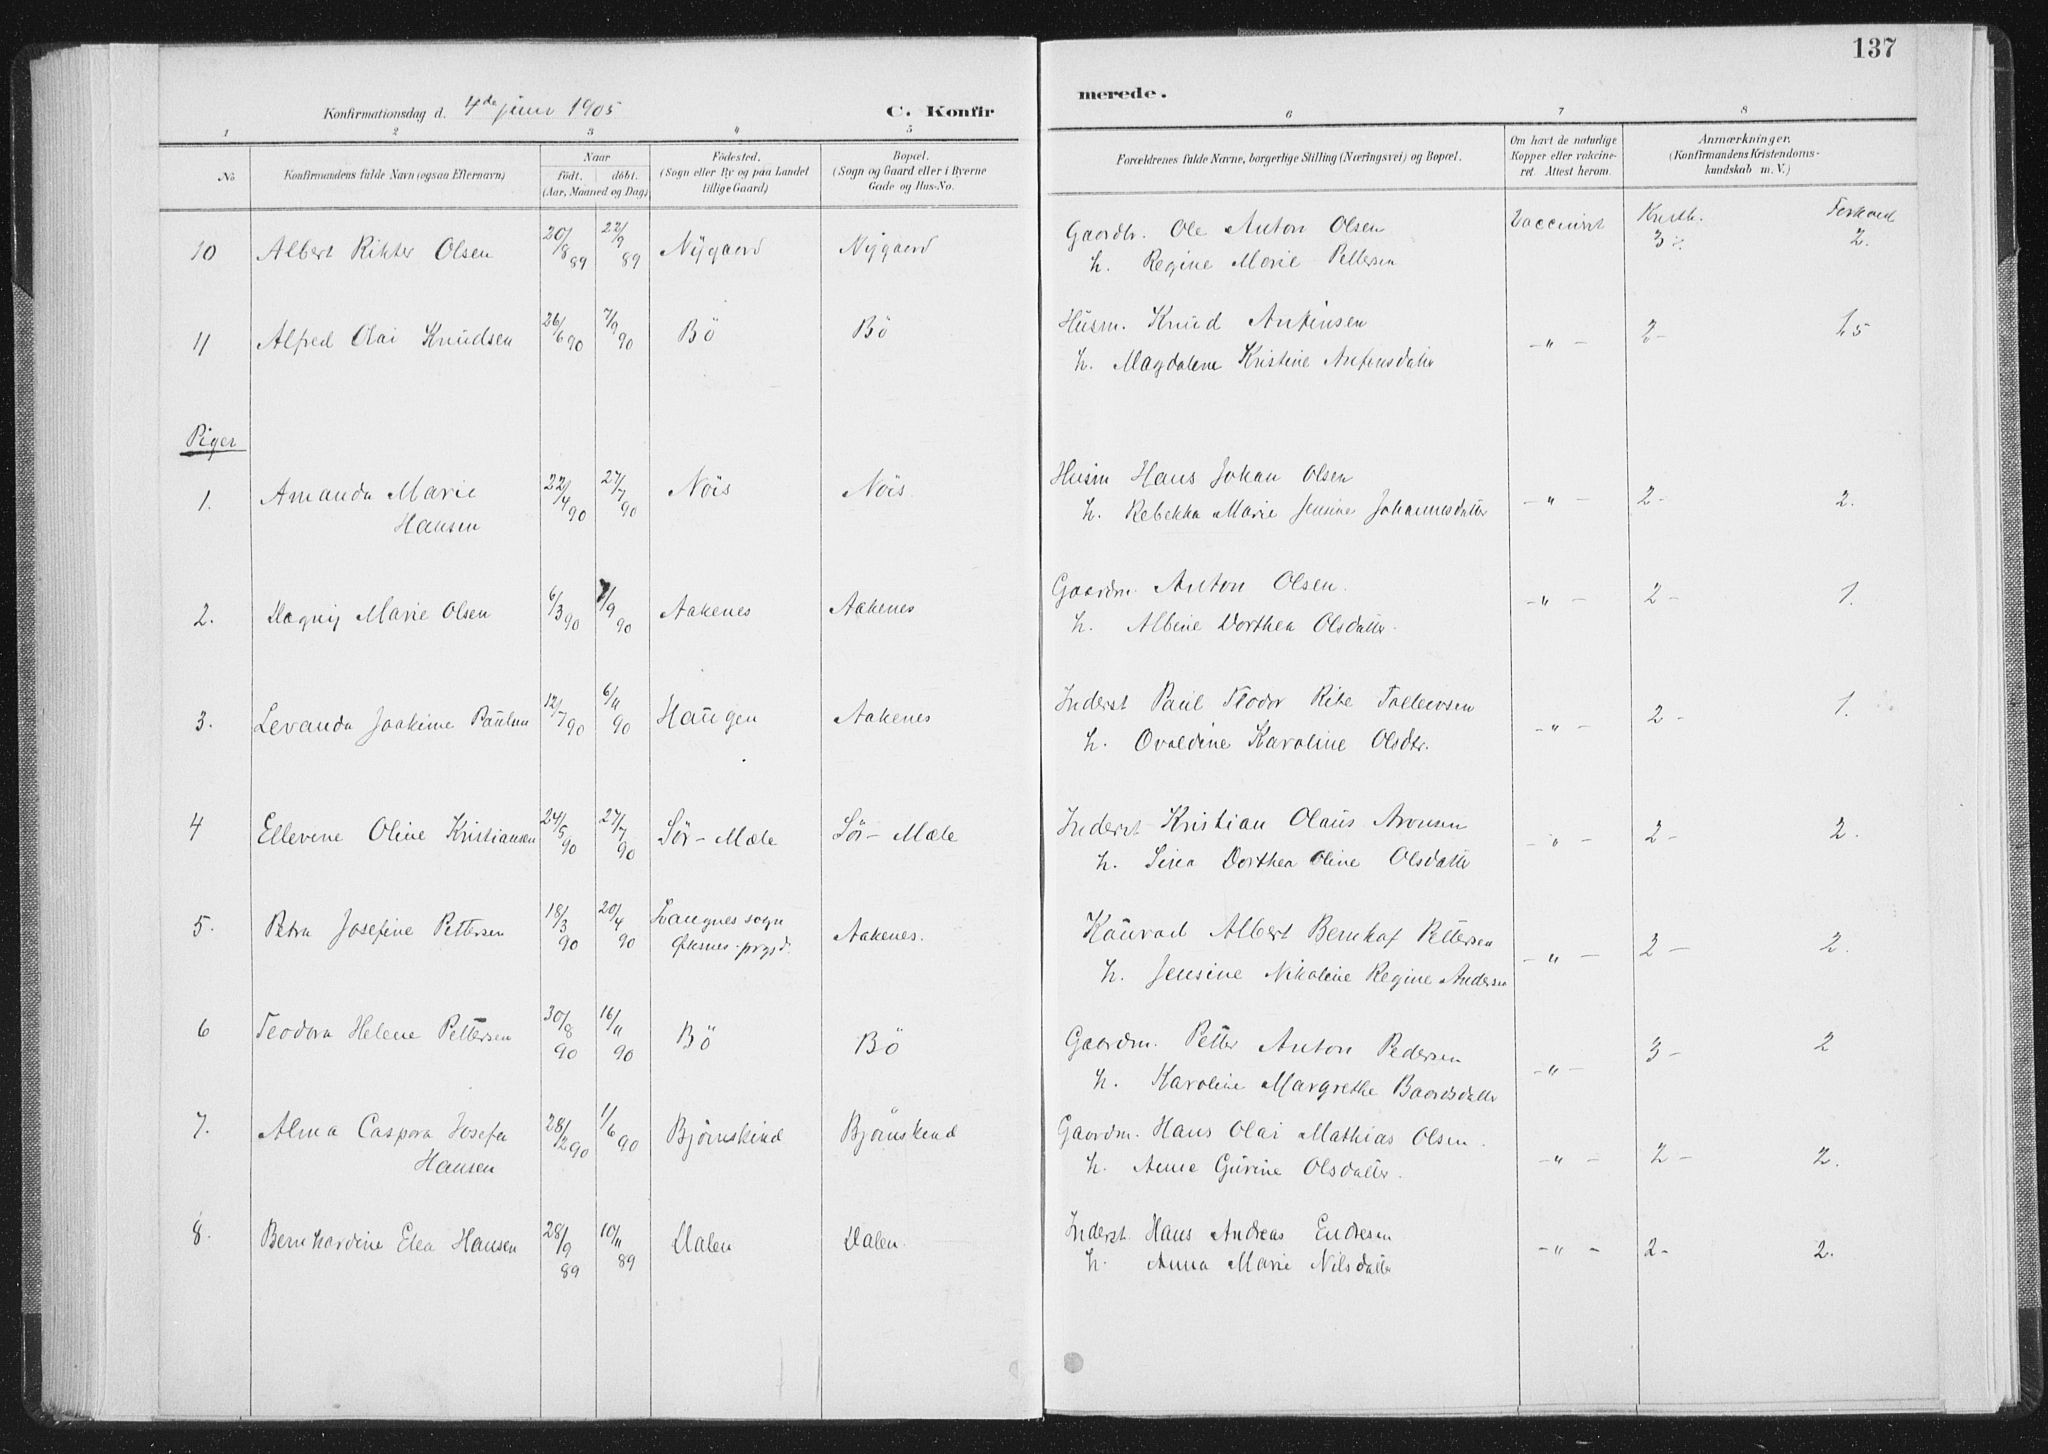 137
Konfirmationsdag d. 4de juni 1905
C. Konfir
merede.
1 2 3 4 5 6 7 8
No
Konfirmandens fulde Navn (ogsaa Efternavn)
Naar
født. døbt.
(Aar, Maaned og Dag)
Fødested.
(Sogn eller By og paa Landet
tillige Gaard)
Bopæl.
(Sogn og Gaard eller i Byerne
Gade og Hus-No.
Forældrenes fulde Navne, borgerlige Stilling (Næringsvei) og Bopæl.
Om havt de naturlige
Kopper eller vakcine-
ret. Attest herom.
Anmærkninger.
(Konfirmandens Kristendoms-
kundskab m. V.)
10 Albert Rikter Olsen 20/8 89 22/9 89 Nygaard Nygaard Gaardbr. Ole Anton Olsen Vaccineret Kristk. 3 Forhold 2.
h. Regine Marie Pettersen
11 Alfred Olai Knudsen 26/6 90 7/9 90 Bö Bö Husm. Knud Antinsen -"- 2- 1,5
h. Magdalene Kristine Anfinsdatter
Piger
1. Amanda Marie 22/4 90 27/7 90 Nöis Nöis. Husm Hans Johan Olsen -"- 2- 2.
Hansen h. Rebekka Marie Jensine Johannesdatter
2. Dagny Marie Olsen 6/3 90 7/9 90 Aakenes Aakenes Gaardm. Anton Olsen. -"- 2- 1.
h. Albine Dorthea Olsdatter.
3. Levanda Joakime Paulsen 12/7 90 6/11 90 Haugen Aakenes Inderst Paul Teodor Tollevsen -"- 2- 1.
h. Ovaldine Karoline Olsdtr.
4 Ellevine Oline Kristiansen 24/5 90 27/7 90 Sör-Mæle Sör-Mæle Inderst Kristian Olaus Aronsen -"- 2- 2.
h. Sina Dorthea Oline Olsdatter
5. Petra Josefine Pettersen 18/3 90 20/4 90 Langnes sogn Aakenes. Konrad Albert Bernhof Pettersen -"- 2- 2.
Öksnes prgjd. h. Jensine Nikoline Regine Andersen
6 Teodora Helene Pettersen 30/8 90 16/11 90 Bö Bö Gaardm. Petter Anton Pedersen -"- 3- 2
h. Karoline Margrethe Baardsdatter
7. Alma Caspara Josefa 28/2 90 1/6 90 Björnskind Björnskind Gaardm. Hans Olai Mathias Olsen. -"- 2- 2.
Hansen h. Anne Gurine Olsdatter.
8. Bernhardine Elea Hansen 28/9 89 10/11 89 Dalen Dalen. Inderst. Hans Andreas Endresen -"- 2- 2.
h. Anna Marie Nilsdatter